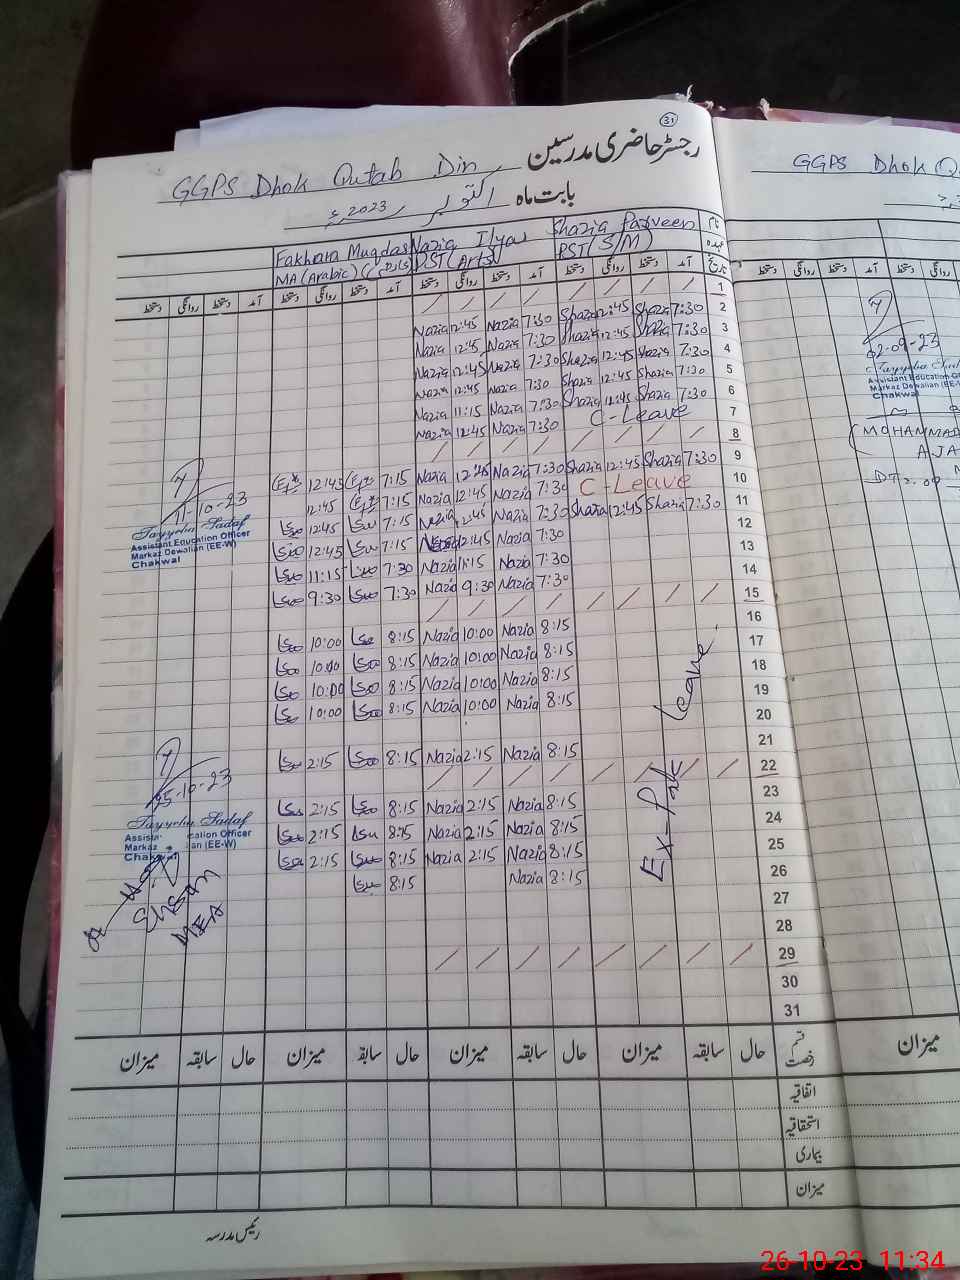 31
رجسٹر حاضری مدرسین GGPS Dhok Qutab Din
بابت ماہ اکتوبر 2023ء
نام Shazia Parveen Nazia Ilyas Fakhara Muqdas
عہدہ PST (S/M) PST (Arts) MA (Arabic)
تاریخ آمد دستخط روانگی دستخط آمد دستخط روانگی دستخط آمد دستخط روانگی دستخط آمد دستخط روانگی دستخط
1
2 7:30 Shazia 12:45 Shazia 7:30 Nazia 12:45 Nazia
3 7:30 Shazia 12:45 Shazia 7:30 Nazia 12:45 Nazia
4 7:30 Shazia 12:45 Shazia 7:30 Nazia 12:45 Nazia
5 7:30 Shazia 12:45 Shazia 7:30 Nazia 12:45 Nazia
6 7:30 Shazia 12:45 Shazia 7:30 Nazia 11:15 Nazia
7 C-Leave 7:30 Nazia 12:45 Nazia
8
9 7:30 Shazia 12:45 Shazia 7:30 Nazia 12:45 Nazia 7:15 12:45
10 C-Leave 7:30 Nazia 12:45 Nazia 7:15 12:45
11 7:30 Shazia 12:45 Shazia 7:30 Nazia 12:45 Nazia 7:15 12:45
12 7:30 Nazia 12:45 Nazia 7:15 12:45
13 7:30 Nazia 11:15 Nazia 7:30 11:15
14 7:30 Nazia 9:30 Nazia 7:30 9:30
15
16 8:15 Nazia 10:00 Nazia 8:15 10:00
17 8:15 Nazia 10:00 Nazia 8:15 10:00
18 8:15 Nazia 10:00 Nazia 8:15 10:00
19 8:15 Nazia 10:00 Nazia 8:15 10:00
20
21 8:15 Nazia 2:15 Nazia 8:15 2:15
22
23 8:15 Nazia 2:15 Nazia 8:15 2:15
24 8:15 Nazia 2:15 Nazia 8:15 2:15
25 8:15 Nazia 2:15 Nazia 8:15 2:15
26 8:15 Nazia 8:15
27
28
29
30
31
Ex-Pak Leave
11-10-23
Tayyeba Sadaf
Assistant Education Officer
Markaz Dewalian (EE-W)
Chakwal
25-10-23
Tayyeba Sadaf
Assista cation Officer
Markaz ian (EE-W)
Chakwal
Ehsan
MEA
قسم رخصت حال سابقہ میزان حال سابقہ میزان حال سابقہ میزان حال سابقہ میزان
اتفاقیہ
استحقاقیہ
بیماری
میزان
رئیس مدرسہ
GGPS Dhok Q
دستخط روانگی دستخط آمد دستخط روانگی
02-09-23
Tayyeba Sadaf
Assistant Education Of
Markaz Dewalian (EE-W
Chakwal
(MOHAMMAD
AJA
میزان
26-10-23 11:34